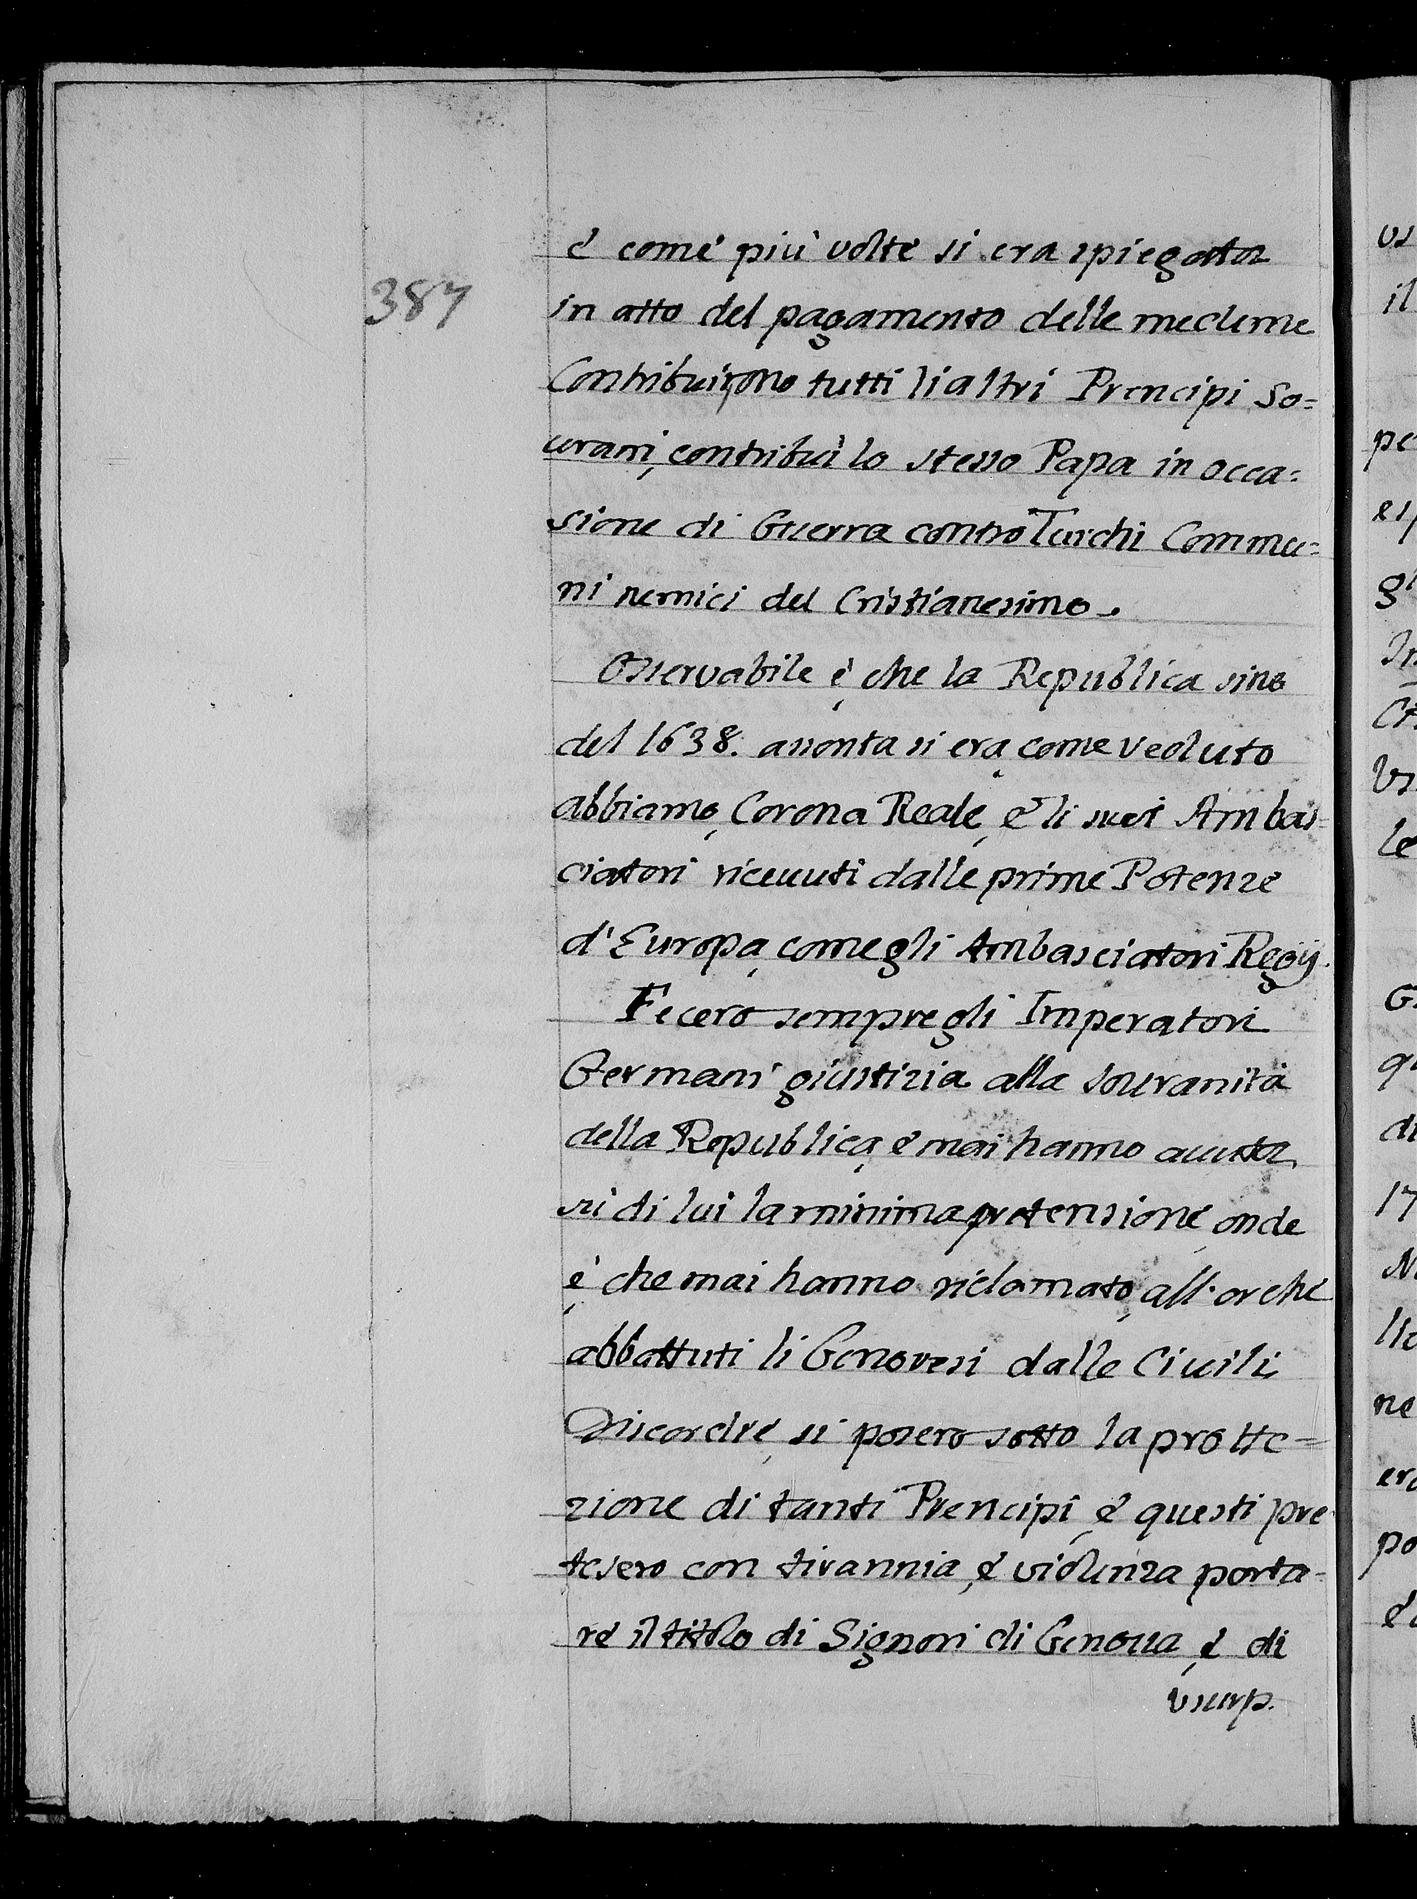 387
è come più volte si era spiegata
in atto del pagamento delle medeme
Contribuirono tutti li altri Prencipi So=
urani, contribuì lo stesso Papa in occa=
sione di Guerra contro Turchi Commu=
ni nemici del Cristianesimo.
Osservabile è, che la Republica sino
del 1638. assonta si era, come veduto
abbiamo, Corona Reale, e li suoi Ambas=
ciatori riceuuti dalle prime Potenze
d'Europa, come gli Ambasciatori Regij.
Fecero sempre gli Imperatori
Germani giustizia alla Souranità
della Republica, e mai hanno auuta
sù di lui la minima pretensione, onde
è, che mai hanno riclamato, all'orche
abbattuti li Genovesi dalle Ciuili
Discordie, si posero sotto la protte=
zione di tanti Prencipi, e questi pre
tesero con tirannia, e violenza porta=
re il titolo di Signori di Genoua, e di
usurp.
us
il
pe
esp
gl
In
Ct
Vs
le
G
qu
di
17
N
lla
ne
era
po
e